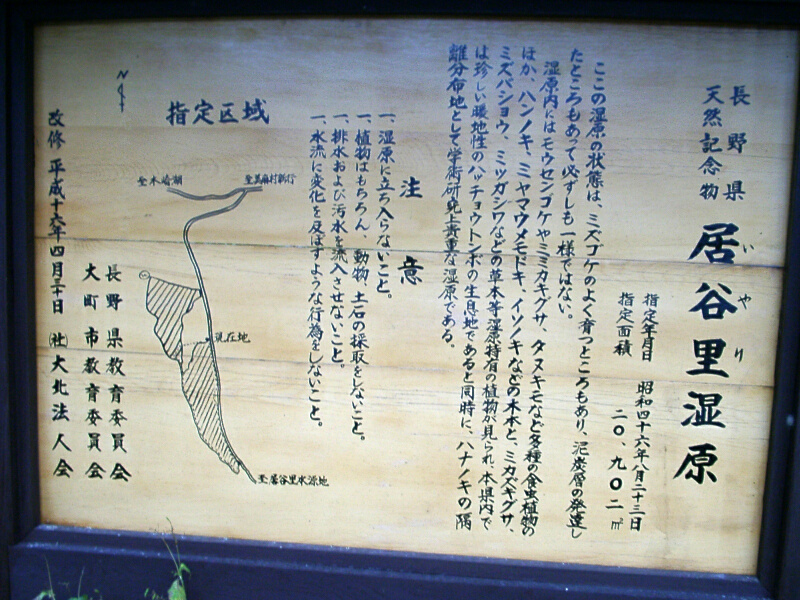 長野県
天然記念物
居谷里湿原
いやり
指定年月日 昭和四十六年八月二十三日
指定面積 二〇、九〇二㎡
ここの湿原の状態は、ミズゴケのよく育つところもあり、泥炭層の発達し
たところもあって必ずしも一様ではない。
湿原内にはモウセンゴケやミミカキグサ、タヌキモなど多種の食虫植物の
ほか、ハンノキ、ミヤマウメモドキ、イソノキなどの木本と、ミカズキグサ、
ミズバショウ、ミツガシワなどの草本等湿原特有の植物が見られ、本県内で
は珍しい暖地性のハッチョウトンボの生息地であると同時に、ハナノキの隔
離分布地として学術研究上貴重な湿原である。
注意
一、湿原に立ち入らないこと。
一、植物はもちろん、動物、土石の採取をしないこと。
一、排水および汚水を流入させないこと。
一、水流に変化を及ぼすような行為をしないこと。
指定区域
N
至木崎湖
至美麻村新行
現在地
至居谷里水源地
長野県教育委員会
大町市教育委員会
改修 平成十六年四月三十日 (社)大北法人会